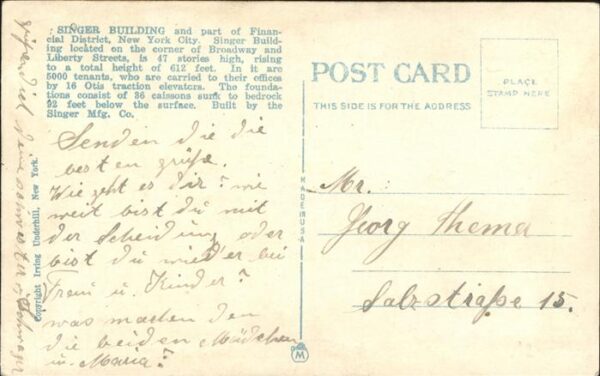 SINGER BUILDING and part of Finan-
cial District, New York City. Singer Build-
ing located on the corner of Broadway and
Liberty Streets, is 47 stories high, rising
to a total height of 612 feet. In it are
5000 tenants, who are carried to their offices
by 16 Otis traction elevators. The founda-
tions consist of 36 caissons sunk to bedrock
92 feet below the surface. Built by the
Singer Mfg. Co.
Senden die die
besten grüße.
Wie geht es dir? wie
weit bist du mit
der Scheidung oder
bist du wieder bei
Frau u. Kinder?
was machen den
die beiden Mädchen
u. Maria?
deine schwester u. Schwager
Copyright Irving Underhill, New York.
MADE IN USA
M
POST CARD
THIS SIDE IS FOR THE ADDRESS
PLACE
STAMP HERE
Mr.
Georg Thema
Salzstraße 15.